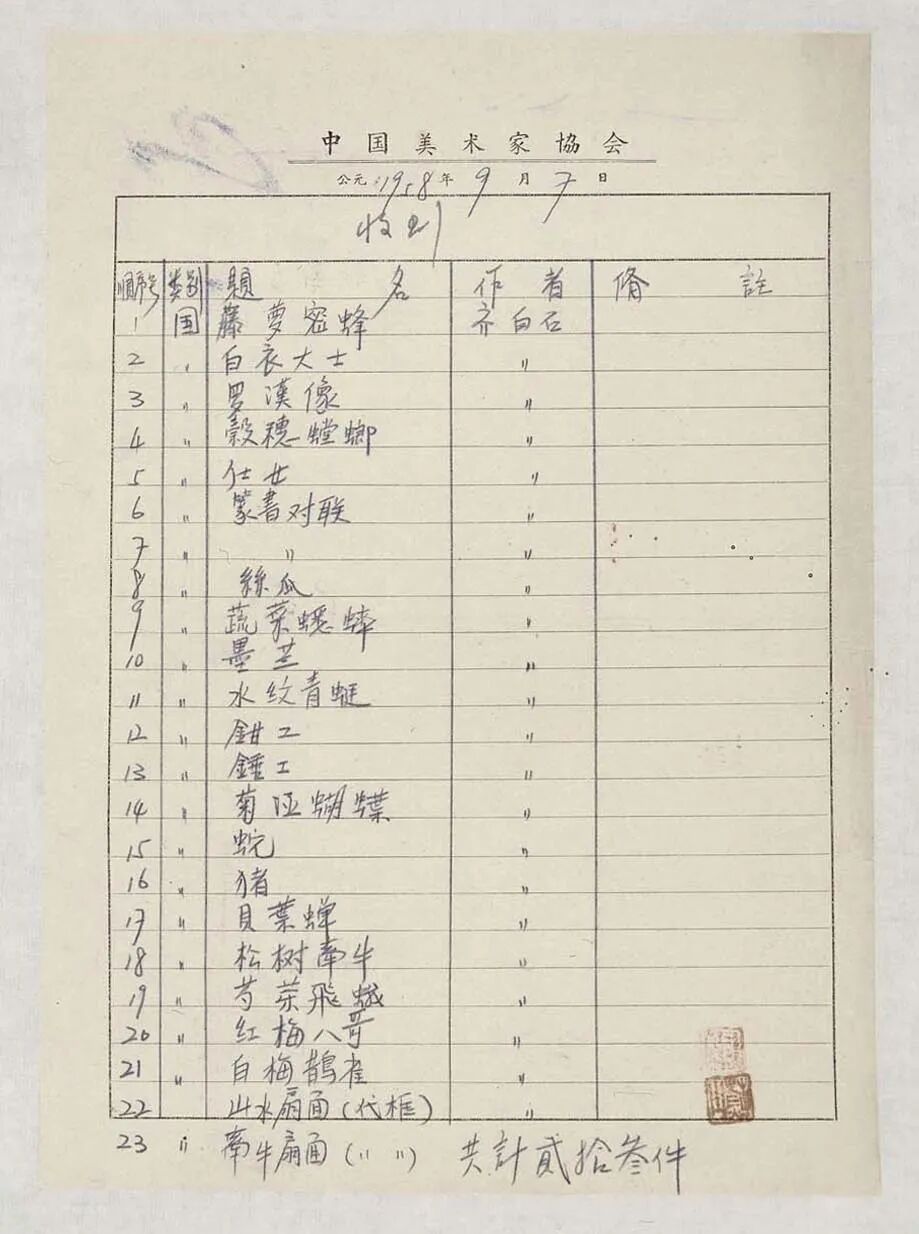 中国美术家協会
公元1958年9月7日
收到
順序号 类别 題名 作者 備註
1 国 藤萝密蜂 齐白石
2 〃 白衣大士 〃
3 〃 罗漢像 〃
4 〃 穀穗螳螂 〃
5 〃 仕女 〃
6 〃 篆書对联 〃
7 〃 〃 〃
8 〃 絲瓜 〃
9 〃 蔬菜蟋蟀 〃
10 〃 墨芝 〃
11 〃 水纹青蜓 〃
12 〃 鉗工 〃
13 〃 錘工 〃
14 〃 菊 蝴蝶 〃
15 〃 〃
16 〃 猪 〃
17 〃 貝葉蝉 〃
18 〃 松树牽牛 〃
19 〃 飛蛾 〃
20 〃 红梅八哥 〃
21 〃 白梅鵲雀 〃
22 山水扇面(代框) 〃
23 〃 牽牛扇面(〃〃) 共計貳拾叁件